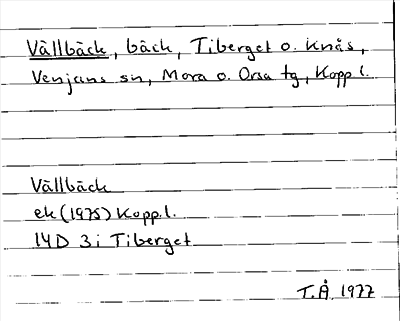 Vällbäck, bäck, Tiberget o. Knås,
Venjans sn, Mora o. Orsa tg, Kopp l.
Vällbäck
ek (1975) Kopp.l.
14D 3i Tiberget
T.Å. 1977